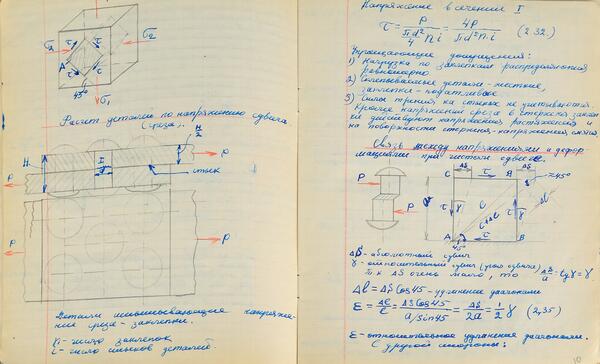 σ₂
σ₂
τ
τ
τ
τ
A
C
45°
σ₁
Расчет детали по напряжению сдвига
(среза).
H
H/2
P
P
P
P
стык
Детали испытывающие напряже-
ние среза - заклепки.
n - число заклепок
i - число стыков деталей
Напряжение в сечении I
τ = P / (πd²/4 · n i) = 4P / (πd² n·i) (2.32.)
Упрощающие допущения:
1) Нагрузка по заклепкам распределяется
равномерно
2) Соединяемые детали - жесткие,
заклепки - податливые
3) Силы трения на стыках не учитываются.
Кроме напряжений среза в стержнях закле
пки действуют напряжения растяжения и
на поверхности стержня - напряжения смятия
Связь между напряжениями и дефор
мациями при чистом сдвиге.
P
P
a
C
ΔS
τ
B
ΔS
≈45°
γ
τ
τ
γ
A
45°
τ
B
ΔS - абсолютный сдвиг
γ - относительный сдвиг (угол сдвига)
т.к ΔS очень мало, то ΔS/a = tgγ = γ
Δl = ΔS Cos45 - удлинение диагонали
ε = Δl/l = ΔS Cos45 / (a/Sin45) = ΔS/2a = 1/2 γ (2,35)
ε - относительное удлинение диагонали.
С другой стороны:
10